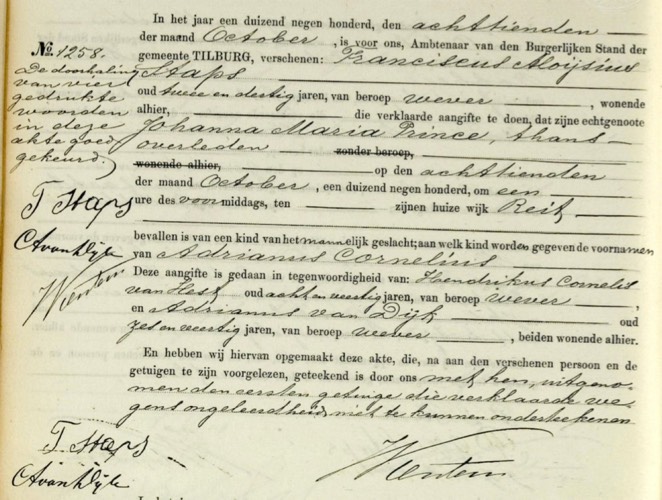 In het jaar een duizend negen honderd, den achttienden
der maand October, is voor ons, Ambtenaar van den Burgerlijken Stand der
gemeente TILBURG, verschenen: Franciscus Aloijsius
Staps
oud twee en dertig jaren, van beroep wever, wonende
alhier, die verklaarde aangifte te doen, dat zijne echtgenoote
Johanna Maria Prince, thans
overleden zonder beroep,
wonende alhier, op den achttienden
der maand October, een duizend negen honderd, om een
ure des voormiddags, ten zijnen huize wijk Reit
bevallen is van een kind van het mannelijk geslacht; aan welk kind worden gegeven de voornamen
van Adrianus Cornelius
Deze aangifte is gedaan in tegenwoordigheid van: Hendrikus Cornelis
van Hest oud acht en veertig jaren, van beroep wever,
en Adrianus van Dijk oud
zes en veertig jaren, van beroep wever, beiden wonende alhier.
En hebben wij hiervan opgemaakt deze akte, die, na aan den verschenen persoon en de
getuigen te zijn voorgelezen, geteekend is door ons met hen, uitgeno-
men den eersten getuige die verklaarde we-
gens ongeleerdheid niet te kunnen onderteekenen
No. 1258.
De doorhaling
van vier
gedrukte
woorden
in deze
akte goed
gekeurd.
F Staps
A van Dijk
F. Staps
A van Dijk